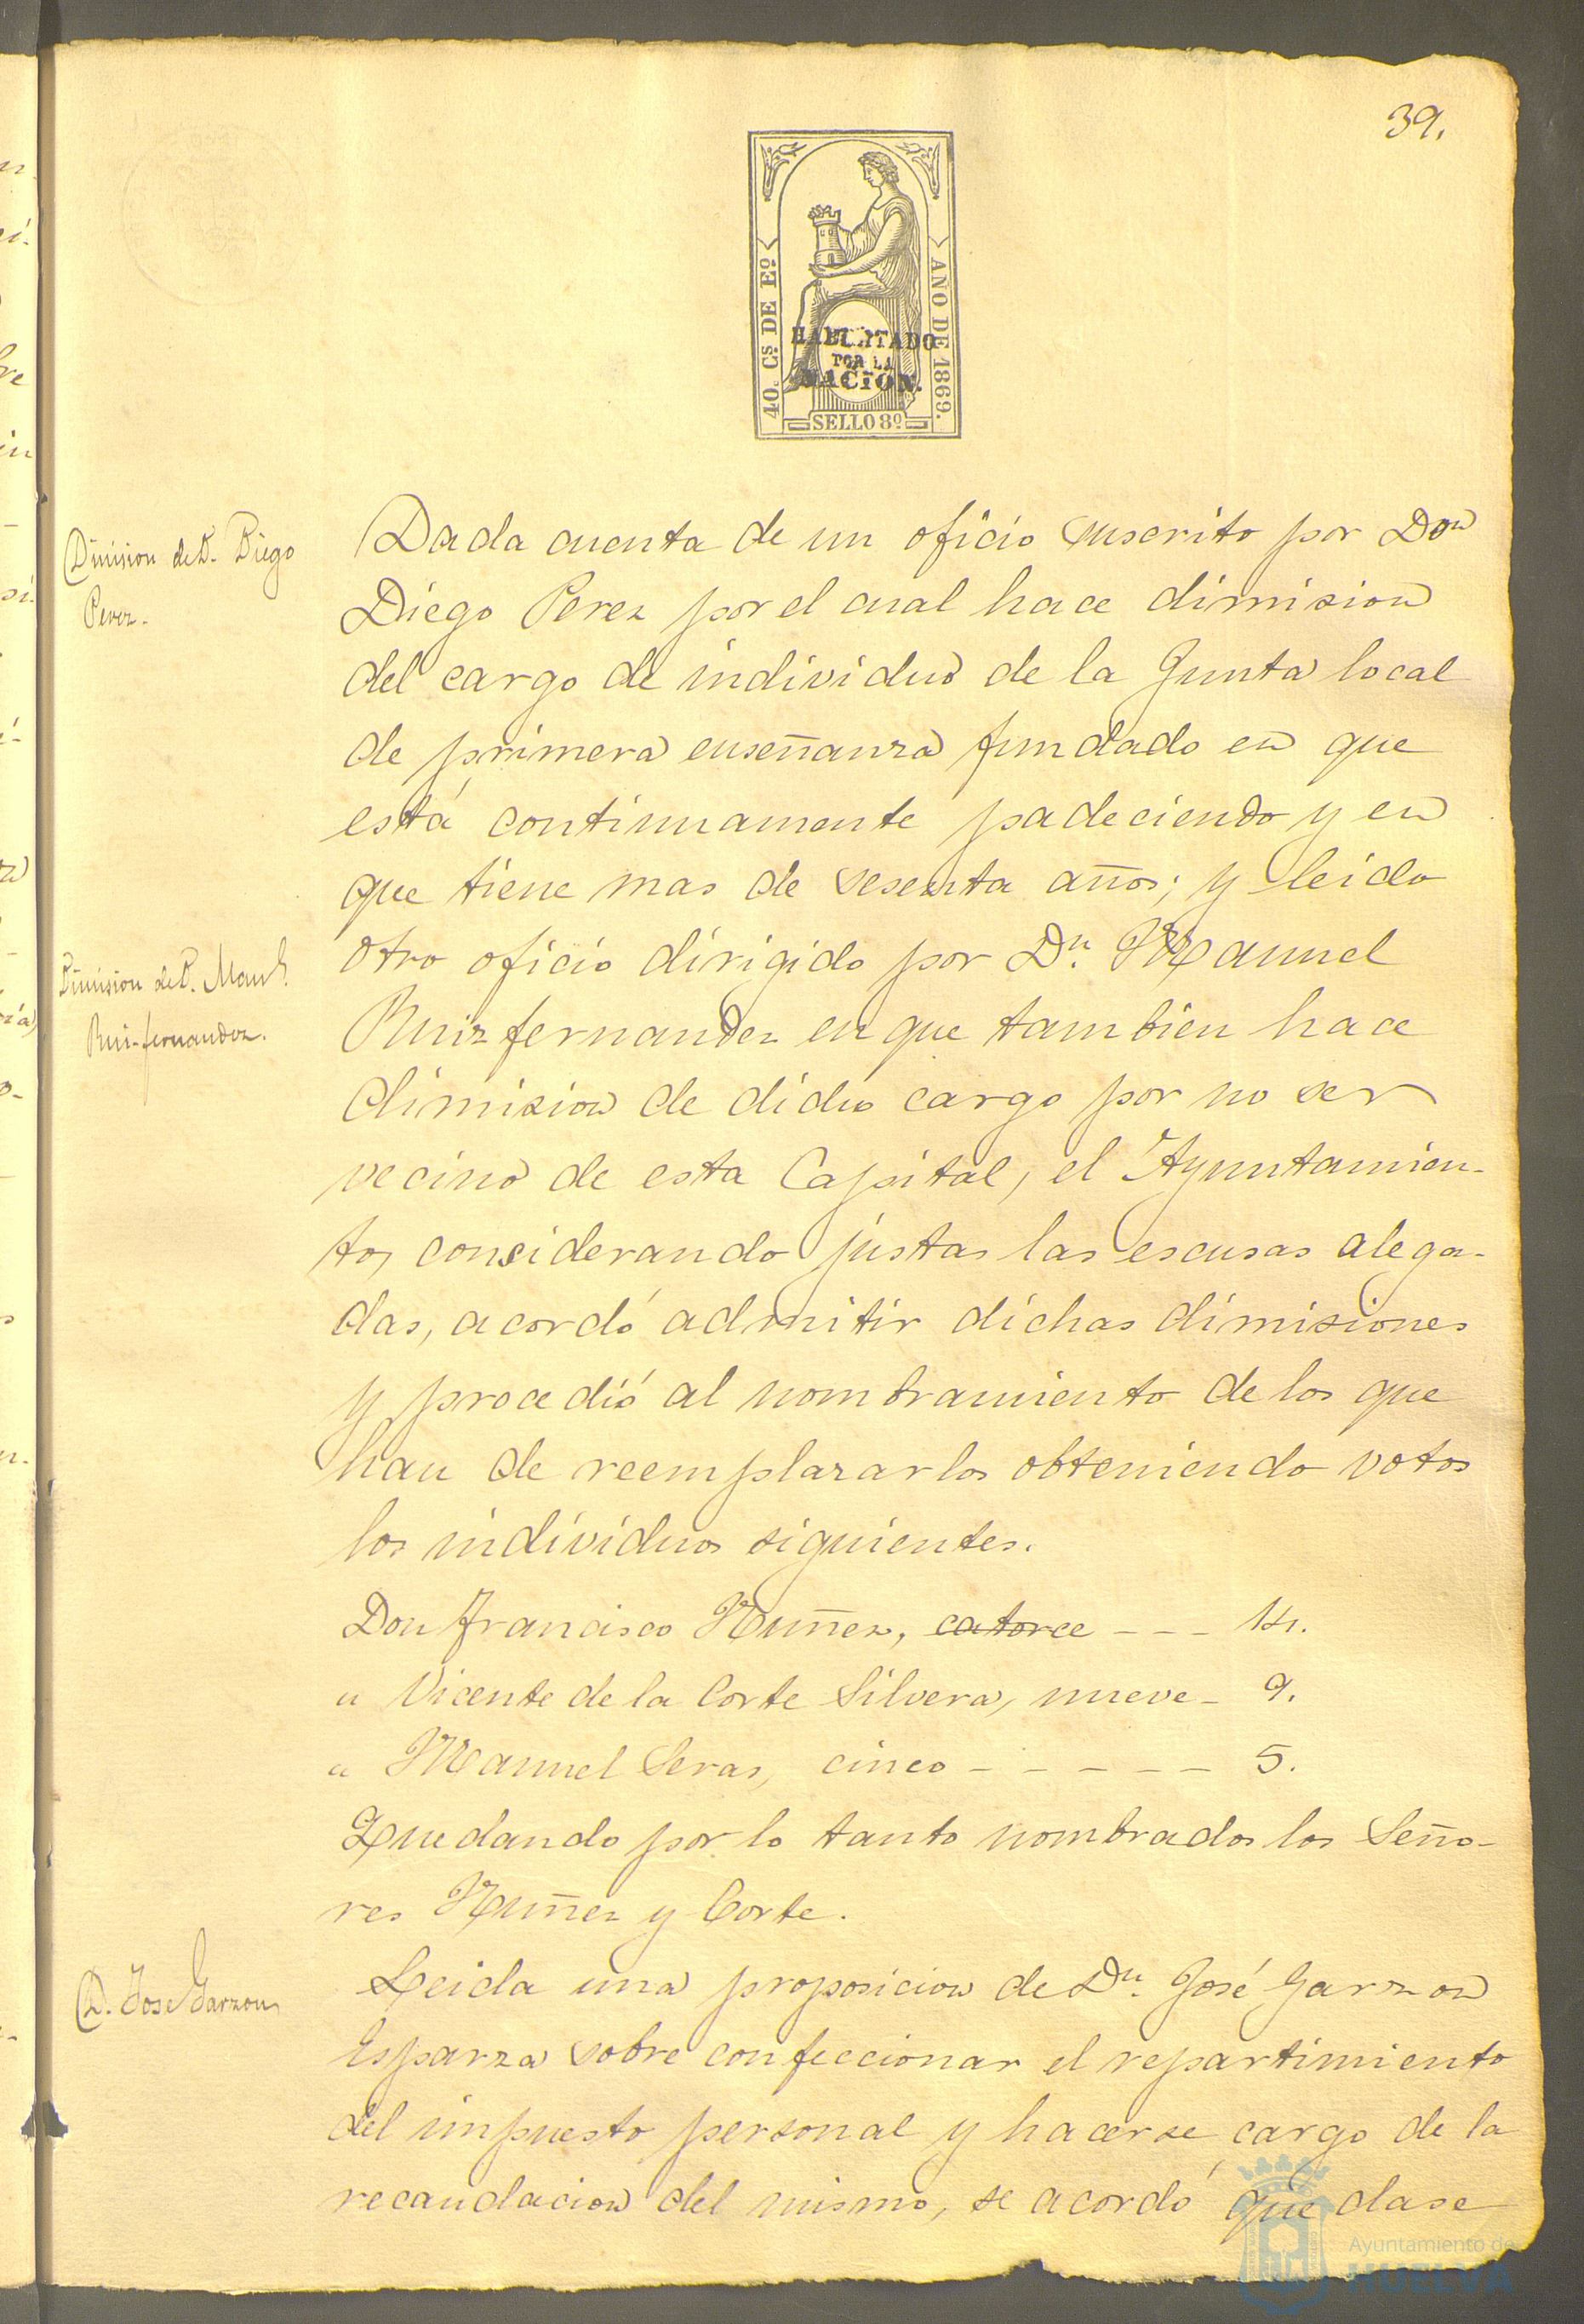 39.
40. Cs. DE Eº.
AÑO DE 1869.
HABILITADO
POR LA
NACION.
SELLO 8º
Dimision de D. Diego
Perez.
Dada cuenta de un oficio suscrito por Don
Diego Perez por el cual hace dimision
del cargo de individuo de la Junta local
de primera enseñanza fundado en que
está continuamente padeciendo y en
que tiene mas de sesenta años; y leido
Dimision de D. Manl.
Ruizfernandez.
otro oficio dirigido por Dn. Manuel
Ruizfernandez en que tambien hace
dimision de dicho cargo por no ser
vecino de esta Capital, el Ayuntamien-
to, considerando justas las escusas alega-
das, acordó admitir dichas dimisiones
y procedió al nombramiento de los que
han de reemplazarlos obteniendo votos
los individuos siguientes.
Don Francisco Nuñez, catorce - - - 14.
" Vicente de la Corte Silvera, nueve - 9.
" Manuel Seras, cinco - - - - - - 5.
Quedando por lo tanto nombrados los Seño-
res Nuñez y Corte.
D. Jose Garzon
Leida una proposicion de Dn. José Garzon
Esparza sobre confeccionar el repartimiento
del impuesto personal y hacerse cargo de la
recaudacion del mismo, se acordó que dase
Ayuntamiento de
HUELVA